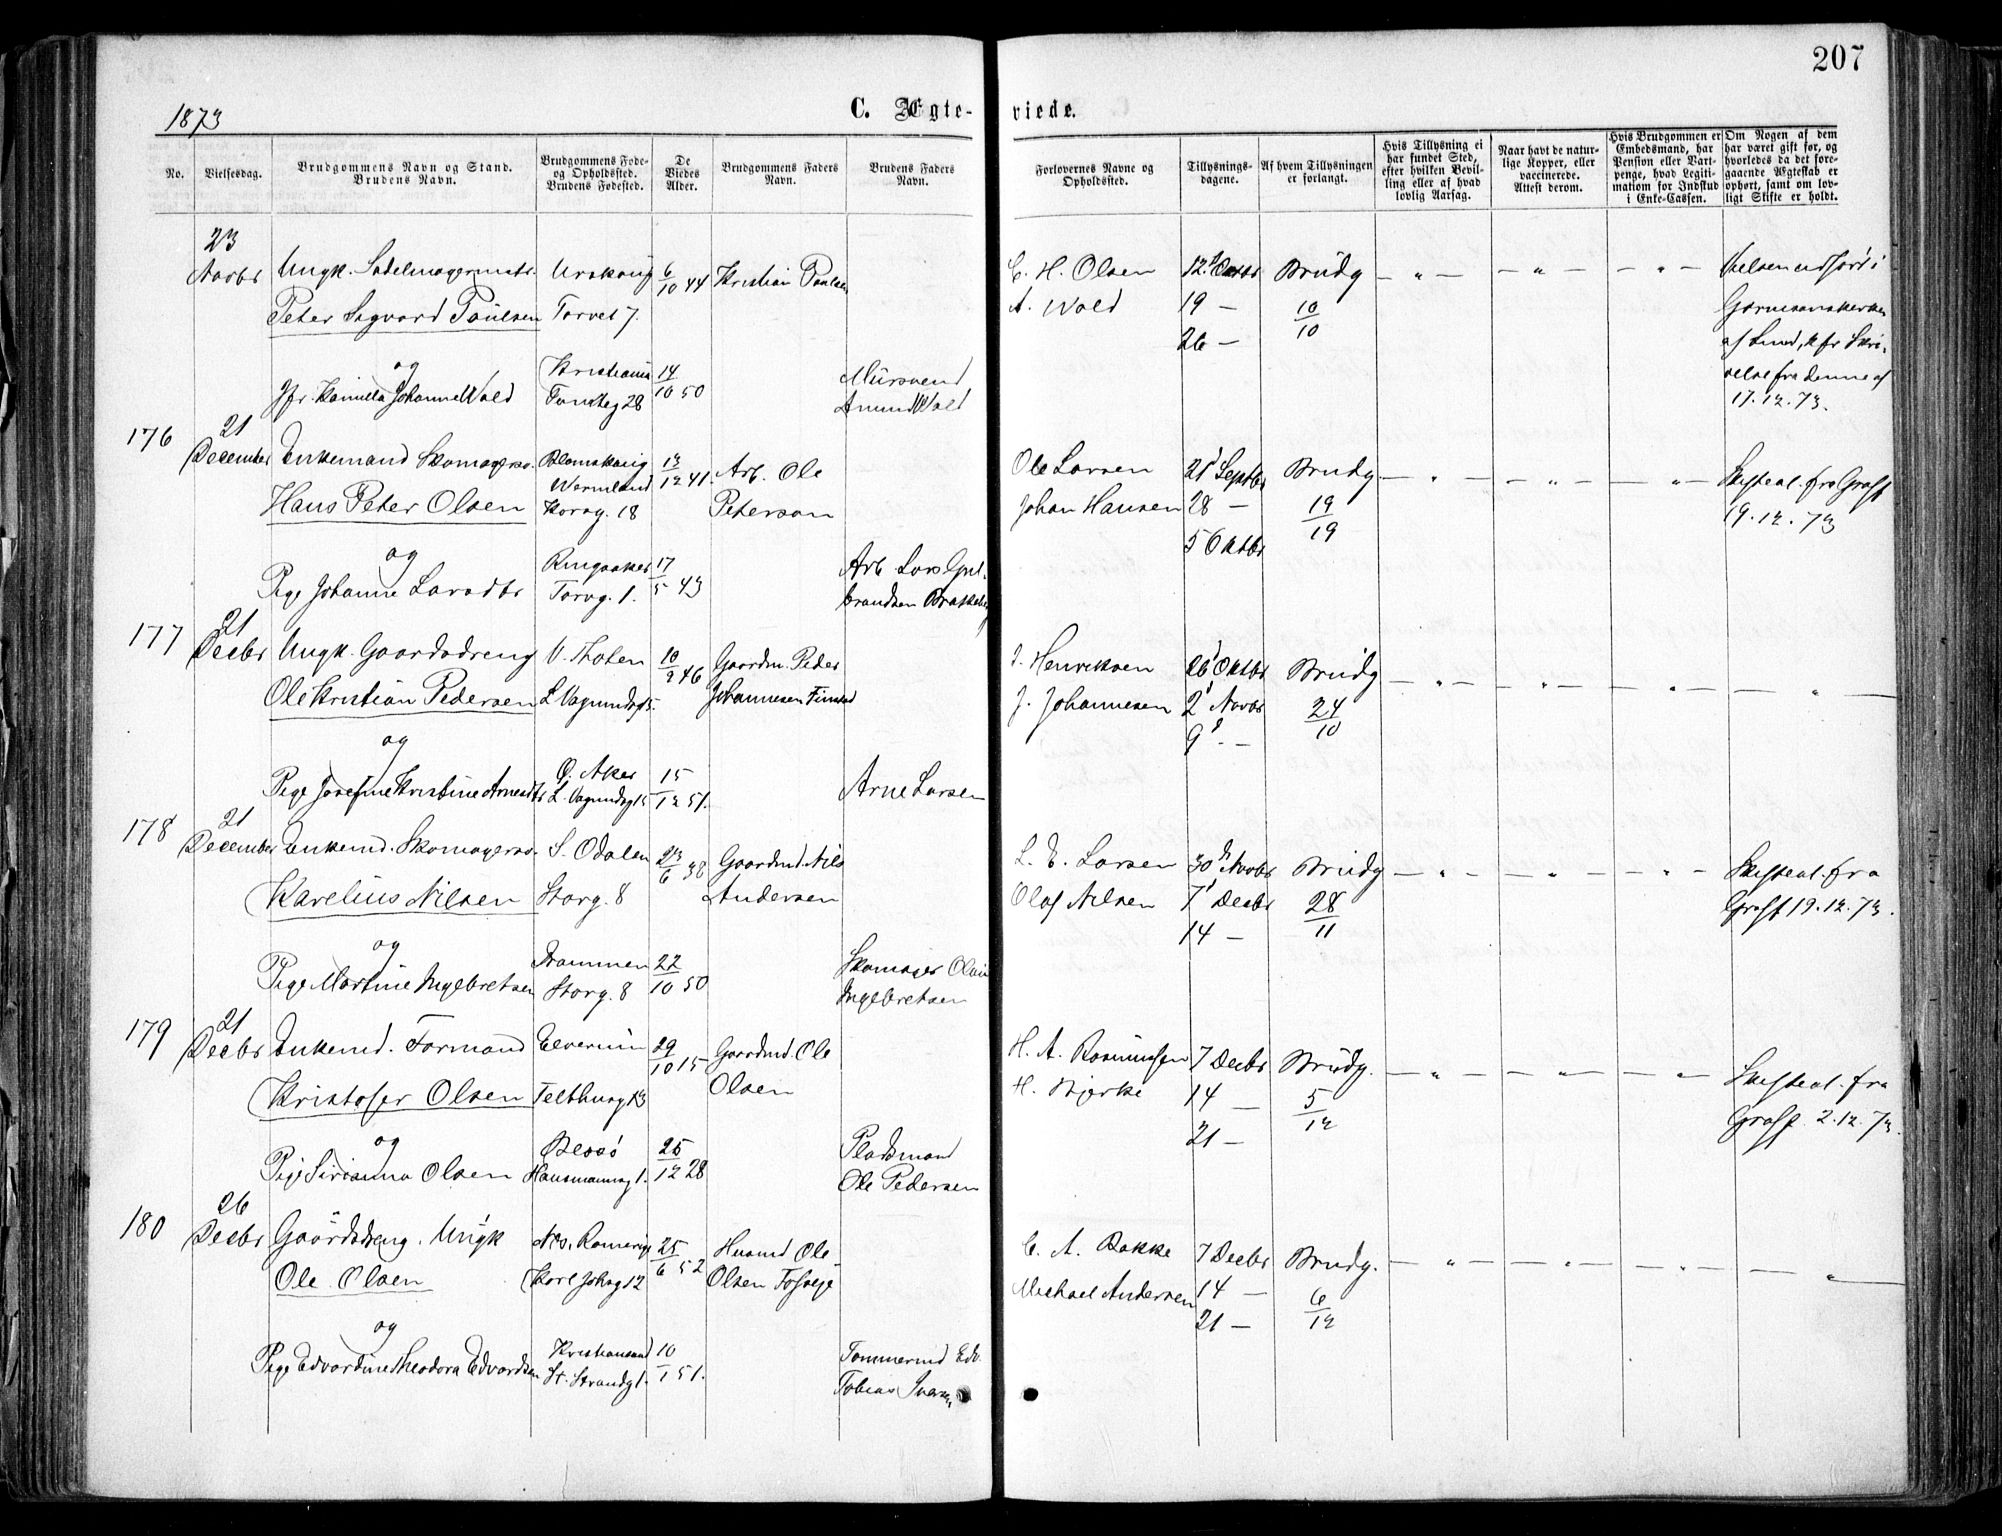 207
1873
C. Ægte-
viede.
No.
Vielsesdag.
Brudgommens Navn og Stand.
Brudens Navn.
Brudgommens Føde-
og Opholdssted.
Brudens Fødested.
De
Viedes
Alder.
Brudgommens Faders
Navn.
Brudens Faders
Navn.
Forlovernes Navne og
Opholdssted.
Tillysnings-
dagene.
Af hvem Tillysningen
er forlangt.
Hvis Tillysning ei
har fundet Sted,
efter hvilken Bevil-
ling eller af hvad
lovlig Aarsag.
Naar havt de natur-
lige Kopper, eller
vaccinerede.
Attest derom.
Hvis Brudgommen er
Embedsmand, har
Pension eller Vart-
penge, hvad Legiti-
mation for Indskud
i Enke-Cassen.
Om Nogen af dem
har været gift før, og
hvorledes da det fore-
gaaende Ægteskab er
ophørt, samt om lov-
ligt Skifte er holdt.
23
Novbr Ungk. Sadelmagermstr. Urskoug 6/10 44 Kristian Paulsen
Peter Sigvard Paulsen Torvet 7.
og
Jfr. Kamilla Johanne Wold Kristiania 14/10 50
Amund Wold
C. H. Olsen Brudg
A. Wold 19 — 10/10
26 —
Vielsen udført i
Garnisonskirken
af Lund, kfr Skri-
velse fra denne af
17.12.73.
176 21
December Enkemand Skomagersv. Blomskoug 13/12 41. Arb. Ole
Wermland
Hans Peter Olsen Korsg. 18 Peterson
og
Pige Johanne Larsdtr Ringsaker 17/5 43 Arb Lars Gul-
Torvg. 1. brandsen
Ole Larsen 21 Septbr Brudg
Johan Hansen 28 — 19/19
5 Oktbr
Skifteat. fra
19.12.73
177 21
Decbr Ungk. Gaardsdreng V. Thoten 10/9 46 Gaardm. Peder
Ole Kristian Pedersen Johannesen
og
Pige Josefine Kristine Arnesdtr Ø. Aker 15/12 51. Arne Larsen
J. Henriksen 26 Oktbr Brudg
J. Johannesen 2 Novbr 24/10
9 —
178 21
December Enkemd. Skomagersv. S. Odalen 23/6 38 Gaardmd. Nils
Karelius Nilsen Storg. 8 Andersen
og
Pige Martine Ingebretsen Drammen 22/10 50 Skomager
Storg. 8 Ingebretsen
L. E. Larsen 30 Novbr Brudg
Olaf Nilsen 7 Decbr 28/11
14 —
Skifteat. fra
19.12.73.
179 21
Decbr Enkemd. Formand Elverum 29/10 15 Gaardmd. Ole
Kristofer Olsen Telthusg 13 Olsen
og
Pige Sirianna Olsen 25/12 28 Pladsmand
Hausmannsg 1. Ole Pedersen
H. A. Rasmussen 7 Decbr Brudg.
H. Bjerke 14 — 5/12
21 —
Skifteat. fra
2.12.73.
180 26
Decbr Gaardsdreng. Ungk Nes, Romerige 25/6 52 Husmd Ole
Ole Olsen Karl Johsg 12 Olsen
og
Pige Edvardine Theodora Edvardsen Kristiansund 10/1 51. Tømmermd Edv.
St. Strandg 1. Tobias
C. A. Bakke 7 Decbr Brudg.
Michael Andersen 14 — 6/12
21 —